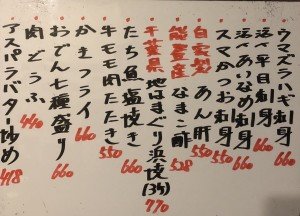 ウマズラハギ刺身
活〆平目刺身
活〆あいなめ刺身 660
スマかつお刺身 550
自家製 あん肝 550
能登産 なまこ酢 528
千葉県 地はまぐり浜焼(3ケ) 770
たち魚塩焼き 660
牛モモ肉たたき
かきフライ 660
おでん七種盛り 660
肉どうふ 440
アスパラバター炒め 418